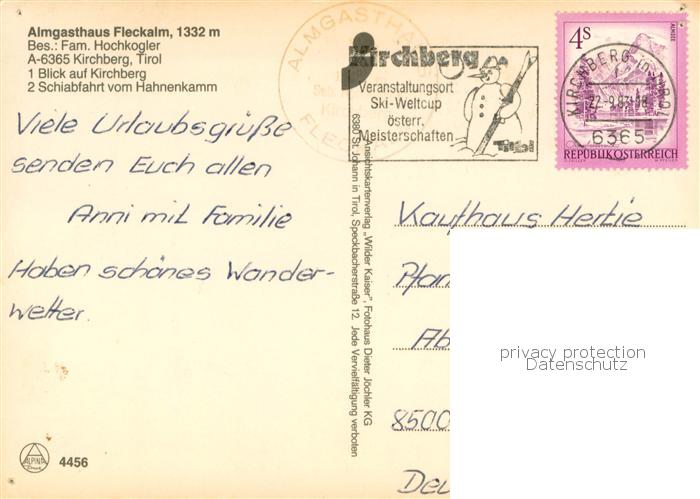 Almgasthaus Fleckalm, 1332 m
Bes.: Fam. Hochkogler
A-6365 Kirchberg, Tirol
1 Blick auf Kirchberg
2 Schiabfahrt vom Hahnenkamm
Viele Urlaubsgrüße
senden Euch allen
Anni mit Familie
Haben schönes Wander-
wetter.
ALPINA
Druck
4456
ALMGASTHA
FLE
Kirchberg
Veranstaltungsort
Ski-Weltcup
österr.
Meisterschaften
Tirol
4S
ALMSEE
KIRCHBERG in TIROL
22.-9.83-18
6365
REPUBLIK ÖSTERREICH
Ansichtskartenverlag „Wilder Kaiser", Fotohaus Dieter Jöchler KG
6380 St. Johann in Tirol, Speckbacherstraße 12. Jede Vervielfältigung verboten
Kaufhaus Hertie
Pfan
Ab
8500
Deu
privacy protection
Datenschutz